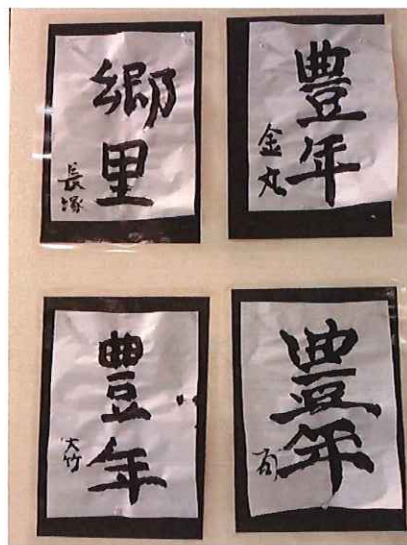 郷里
長塚
豊年
金丸
豊年
大竹
豊年